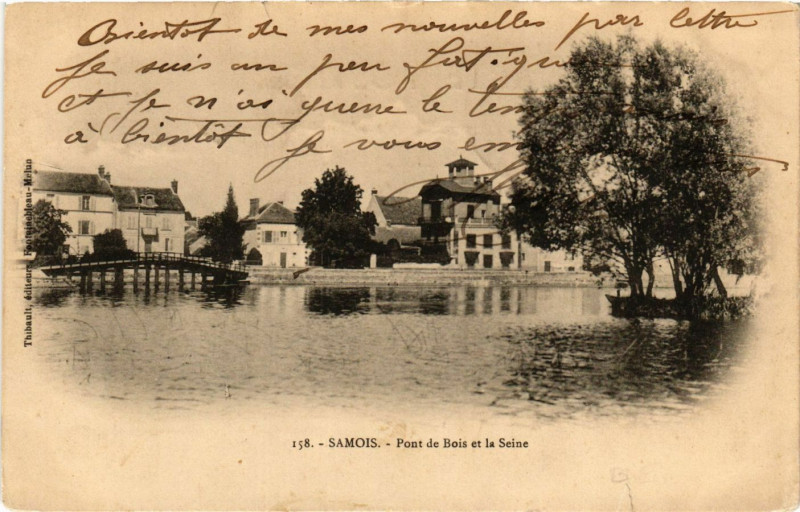 Bientôt de mes nouvelles par lettre
Je suis un peu fatigué
et je n'ai guère le temps
à bientôt Je vous em
Thibault, éditeur, Fontainebleau-Melun
158. - SAMOIS. - Pont de Bois et la Seine